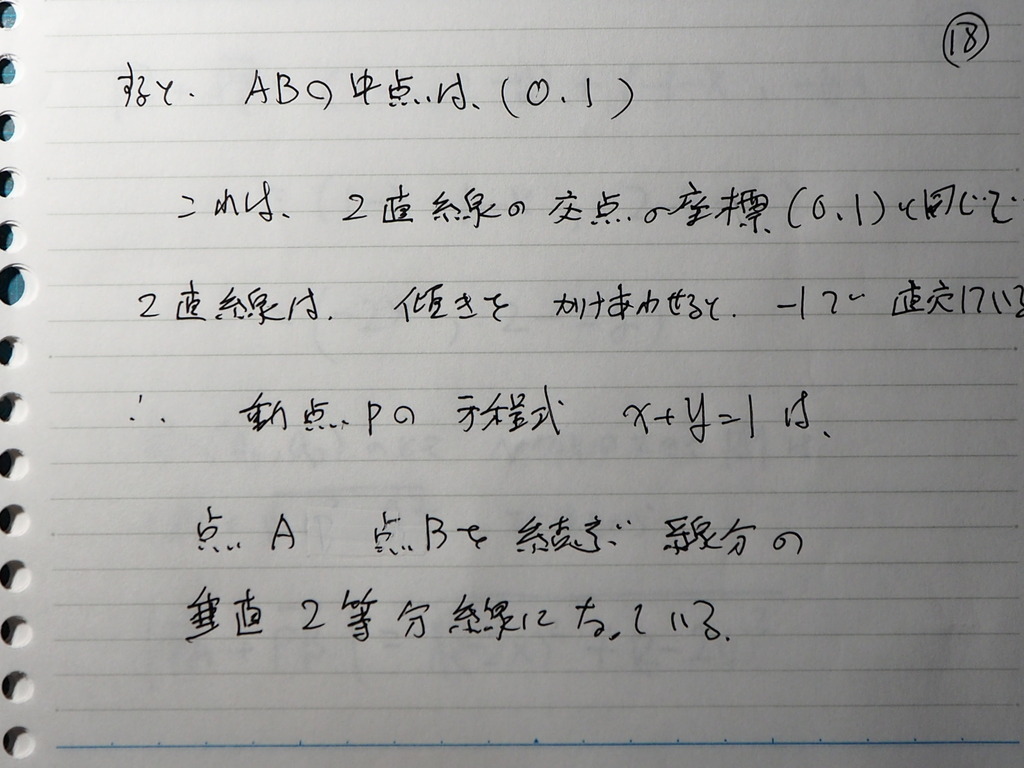 ⑱
すると、 ABの中点は、(0.1)
これは、 2直線の交点の座標(0.1)と同じで
2直線は、 傾きを かけあわせると、 -1で 直交している
∴ 動点Pの 方程式 x+y=1は、
点A 点Bを 結ぶ 線分の
垂直2等分線になっている.